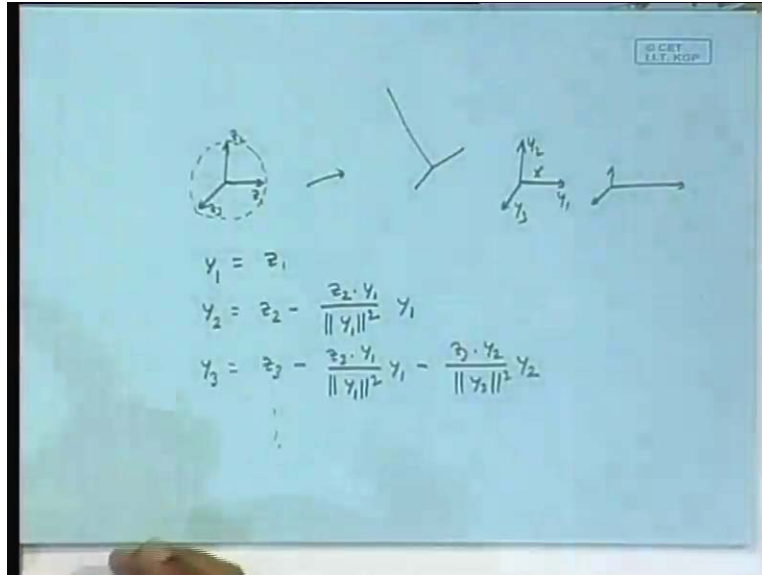 © CET
I.I.T. KGP
z₂
z₁
z₃
y₂
x
y₁
y₃
y₁ = z₁
y₂ = z₂ - (z₂ · y₁) / ||y₁||² y₁
y₃ = z₃ - (z₃ · y₁) / ||y₁||² y₁ - (z₃ · y₂) / ||y₂||² y₂